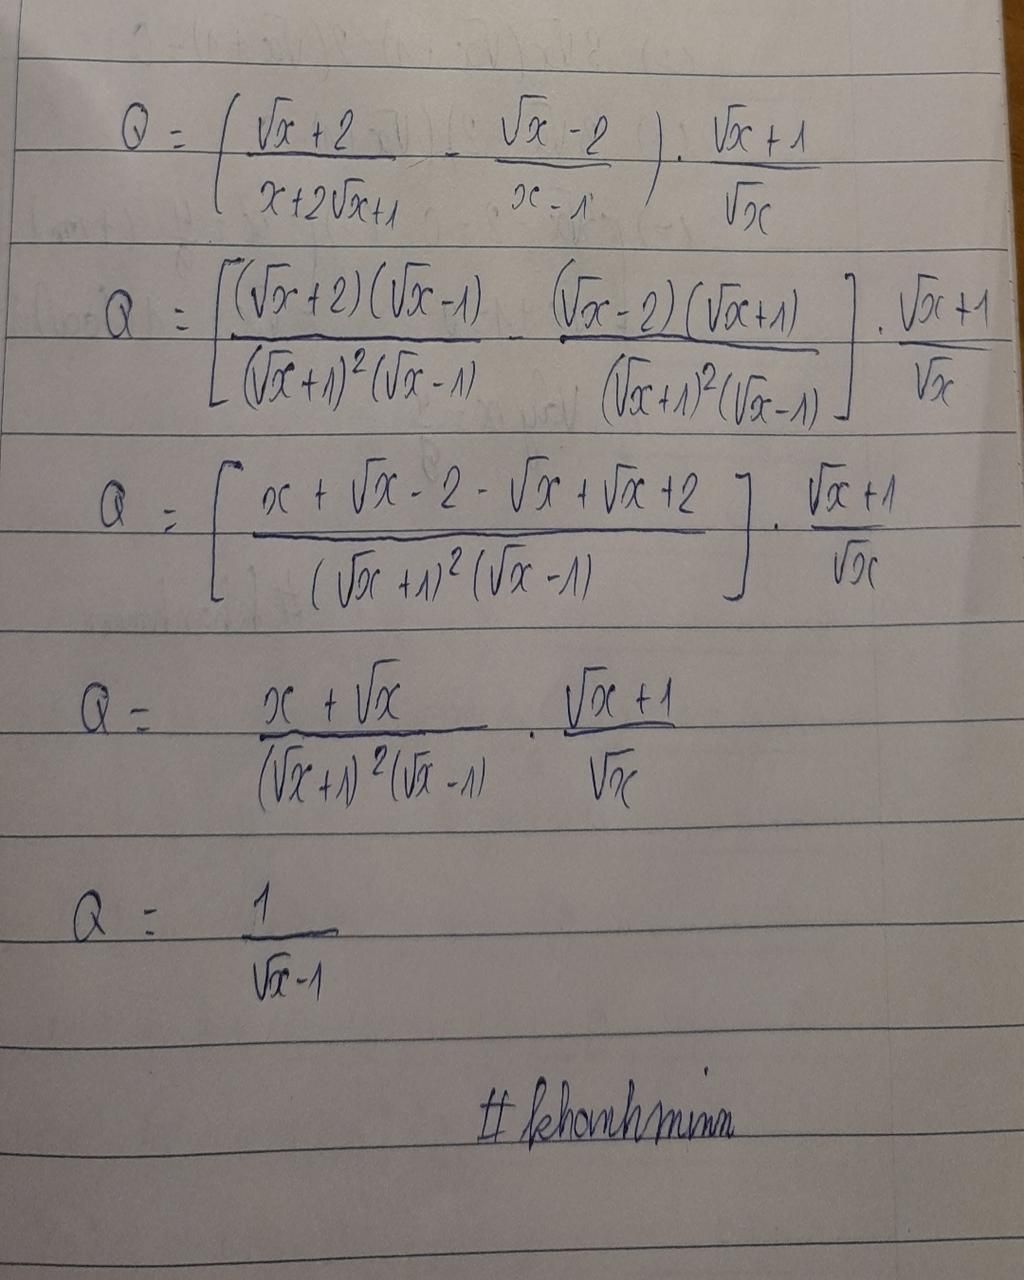 Q = ( (√x + 2)/(x+2√x+1) - (√x - 2)/(x - 1) ) . (√x + 1)/√x
Q = [ (√x+2)(√x-1)/((√x+1)²(√x-1)) - (√x-2)(√x+1)/((√x+1)²(√x-1)) ] . (√x+1)/√x
Q = [ (x + √x - 2 - √x + √x + 2)/((√x+1)²(√x-1)) ] . (√x+1)/√x
Q = (x + √x)/((√x+1)²(√x-1)) . (√x+1)/√x
Q = 1/(√x-1)
# khanhminh